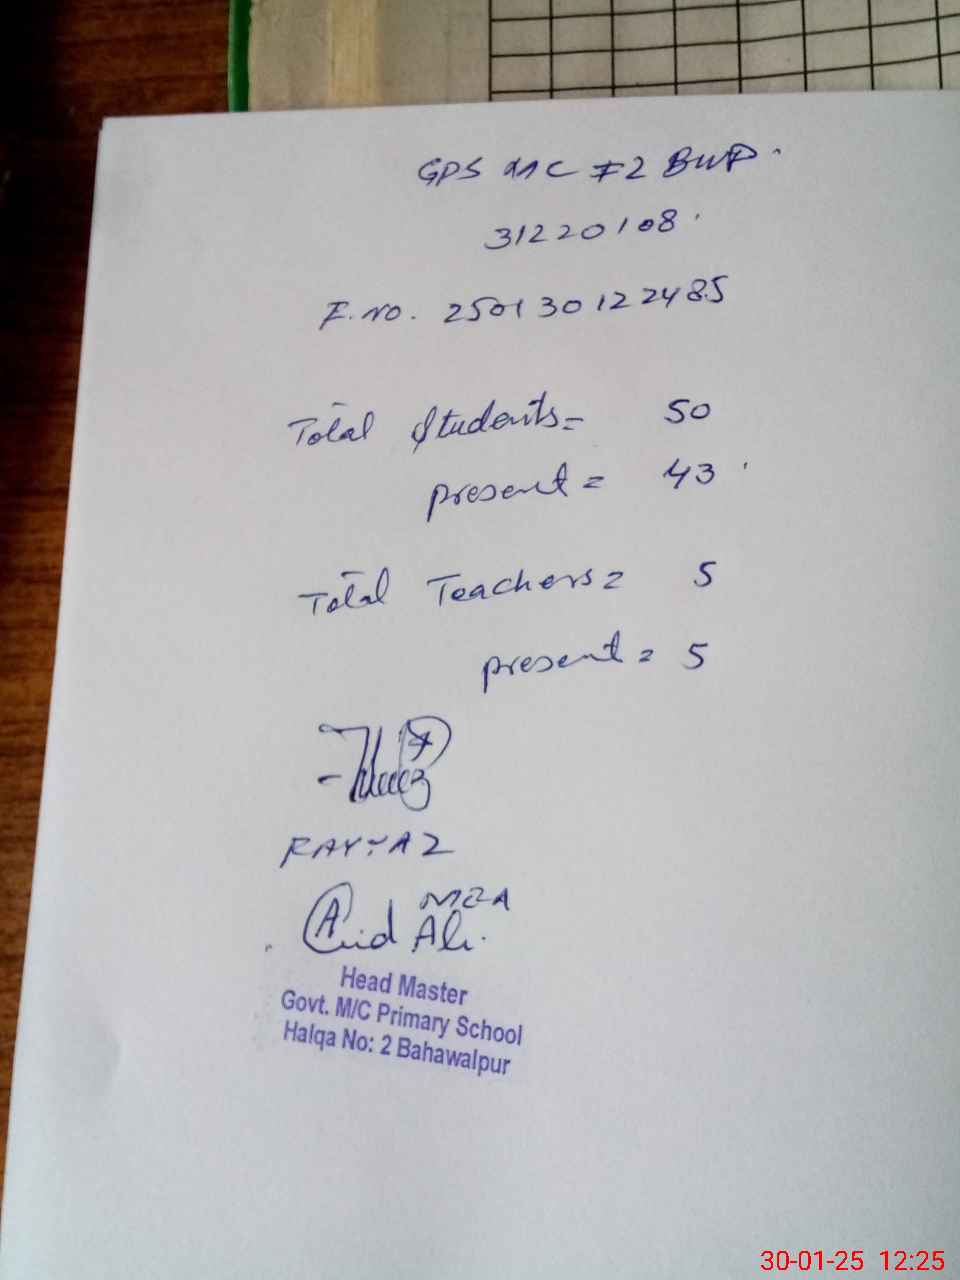 GPS MC #2 BWP.
31220108
F.no. 250130122485
Total Students = 50
present = 43
Total Teachers = 5
present = 5
MEA
Ali.
Head Master
Govt. M/C Primary School
Halqa No: 2 Bahawalpur
30-01-25 12:25